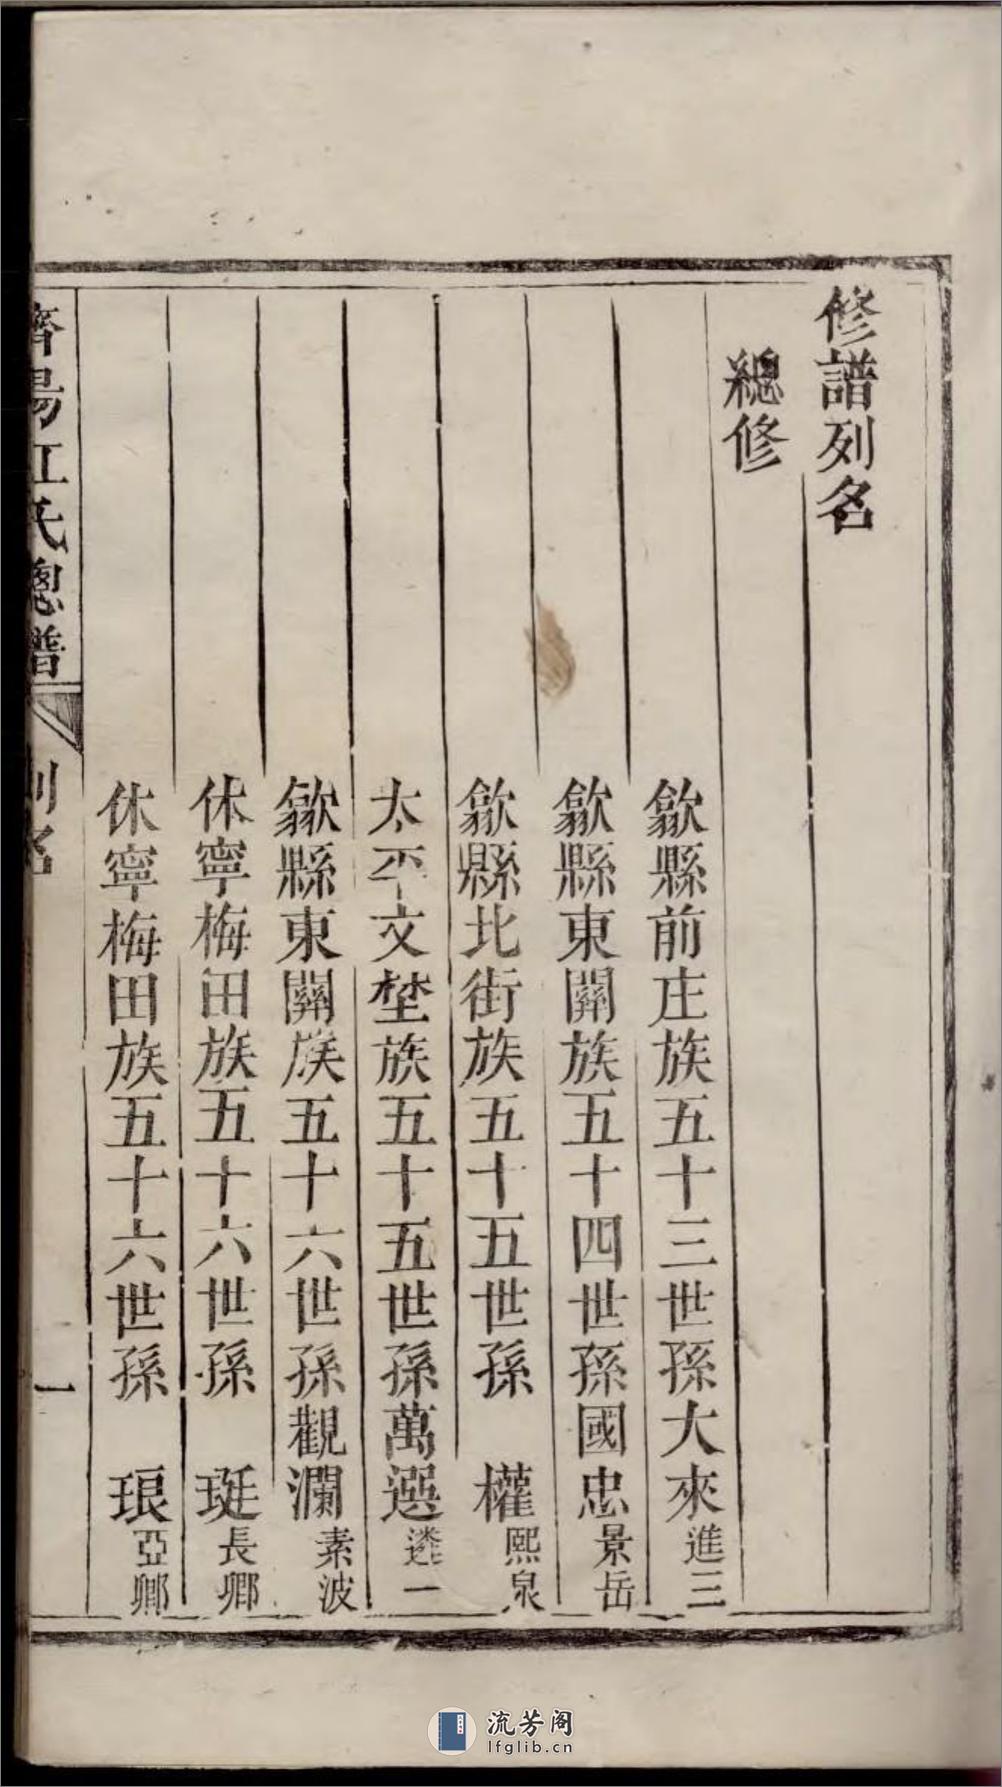 修譜列名
總修
歙縣前庄族五十三世孫大來進三
歙縣東關族五十四世孫國忠景岳
歙縣北街族五十五世孫權熙泉
太平文埜族五十五世孫萬選逵一
歙縣東關族五十六世孫觀瀾素波
休寧梅田族五十六世孫珽長卿
休寧梅田族五十六世孫琅亞卿
濟陽江氏總譜
列名
一
流芳阁
lfglib.cn